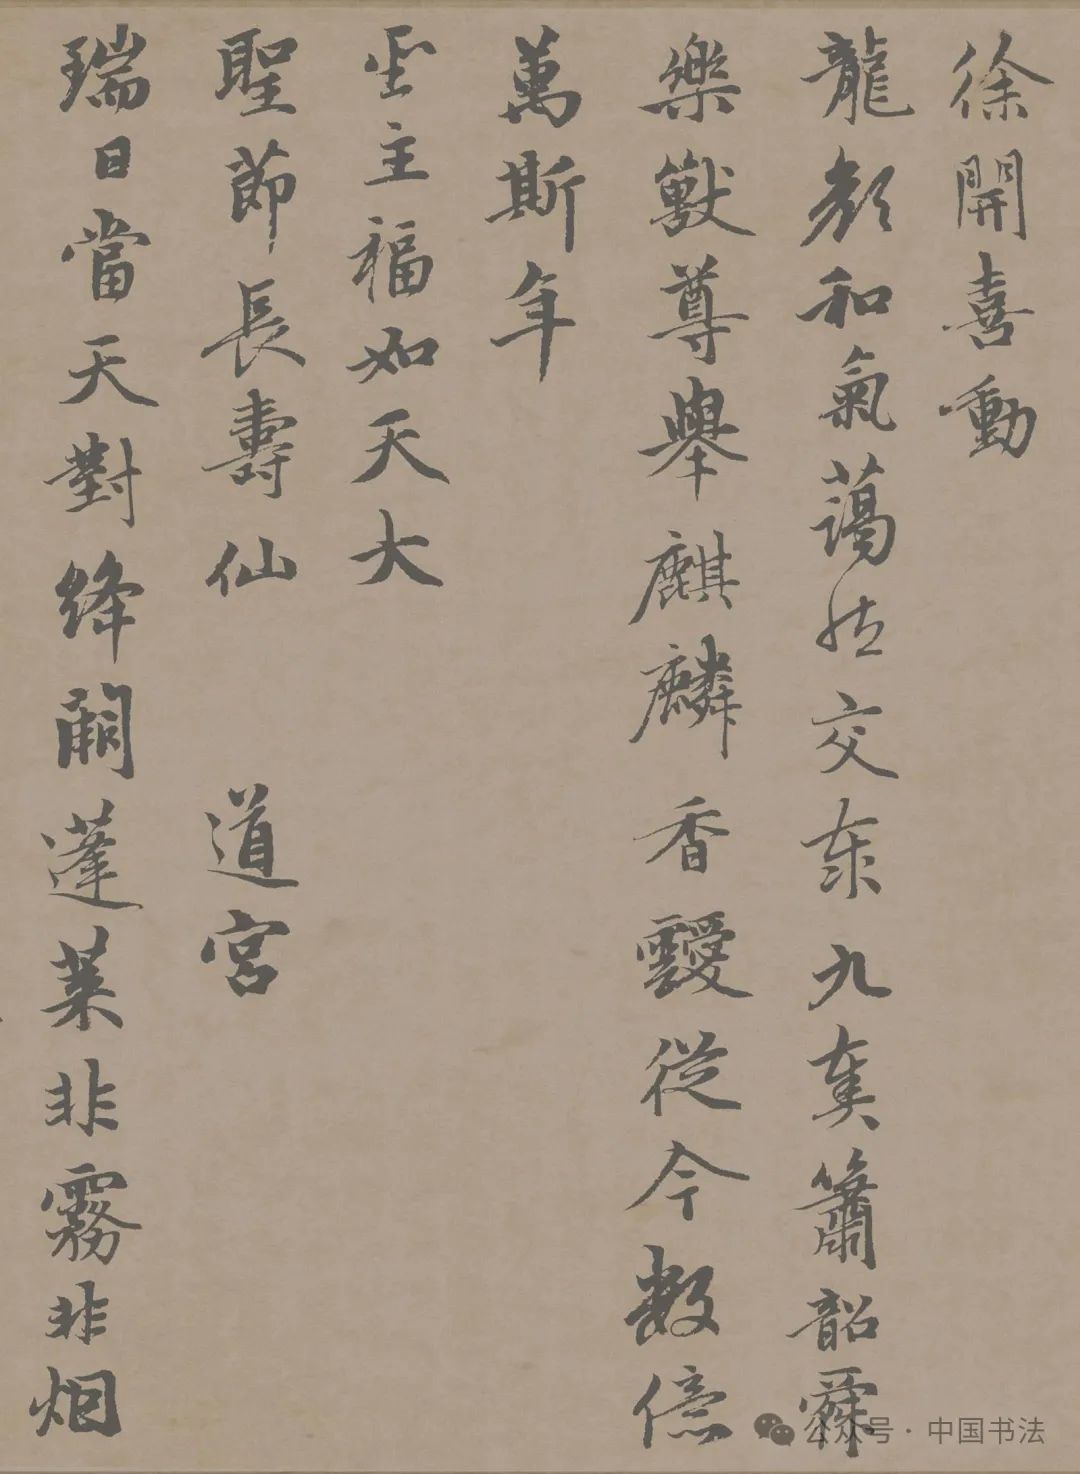 徐開喜動
龍顔和氣藹然交泰九奏簫韶舜
樂獸尊舉麒麟香靉從今數億
萬斯年
聖主福如天大
聖節長壽仙 道宮
瑞日當天對絳闕蓬萊非霧非烟
公众号·中国书法